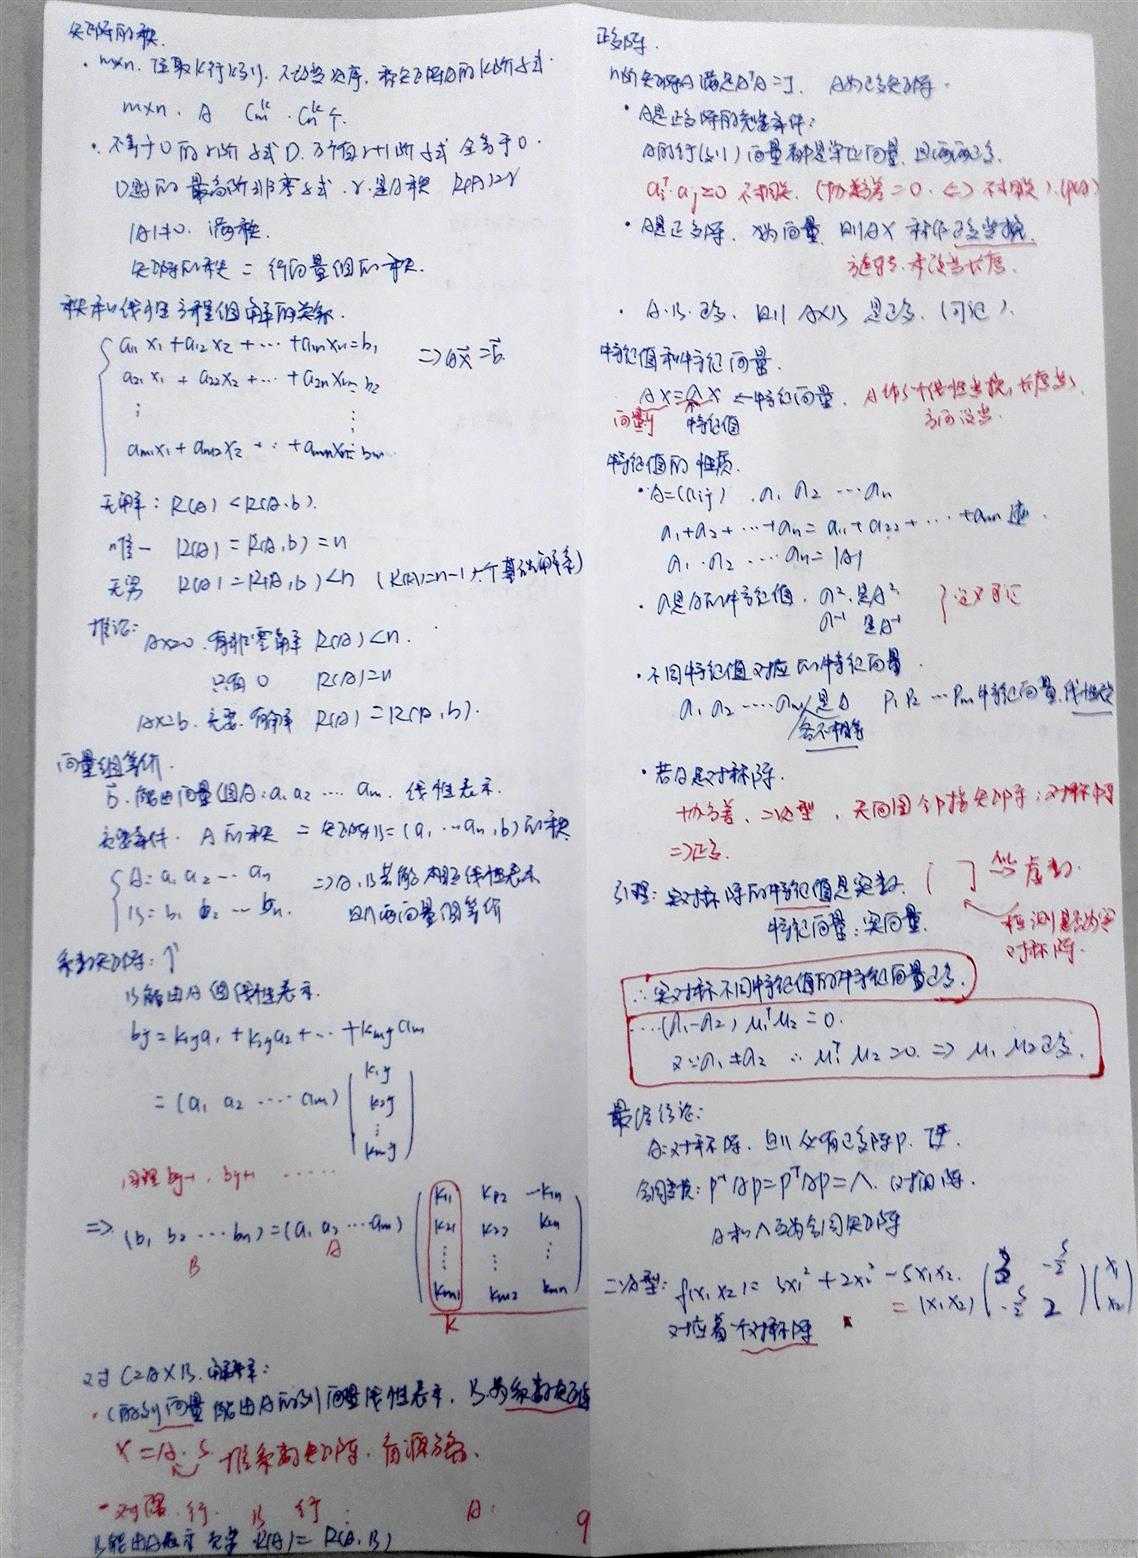 矩阵的秩.
· m×n. 任取K行K列. 不改变次序. 称矩阵A的K阶子式.
m×n. A C_m^k · C_n^k 个.
· 不等于0的r阶子式D. 所有r+1阶子式 全等于0.
D 的 最高阶非零子式. r 是A秩 R(A)=r
|A|≠0. 满秩.
矩阵的秩 = 行向量组的秩.
秩和线性方程组解的关系.
a11 x1 + a12 x2 + ··· + a1n xn = b1 ⇒ A x⃗ = b⃗.
a21 x1 + a22 x2 + ··· + a2n xn = b2
⋮ ⋮
am1 x1 + am2 x2 + ··· + amn xn = bm
无解: R(A) < R(A,b).
唯一 R(A) = R(A,b) = n
无穷 R(A) = R(A,b) < n (R(A)=n-1 1个基础解系)
推论: Ax=0. 有非零解 R(A)<n.
只有 0 R(A)=n
Ax=b. 充要. 有解 R(A) = R(A,b).
向量组等价.
b⃗. 能由向量组A: a1 a2 ···· am. 线性表示.
充要条件. A的秩 = 矩阵B=(a1 ···an, b)的秩
A: a1 a2 ··· an ⇒ A, B若能相互线性表示
B= b1 b2 ··· bn. 则两向量组等价
系数矩阵: ↑
B能由A组线性表示.
bj = k1j a1 + k2j a2 + ··· + kmj am
= (a1 a2 ···· am) (k1j k2j ⋮ kmj)
同理 bj-1, bj+1 ······
⇒ (b1 b2 ··· bn) = (a1 a2 ··· am)
B A
k11 k12 ··· k1n
k21 k22 k2n
⋮ ⋮ ⋮
km1 km2 kmn
K
对 C=A×B. 解释:
· C的列向量 能由A的列向量线性表示, B为系数矩阵
推系数矩阵.
- 对 行. B 行. A.
B能由A表示 充要 R(A) = R(A,B)
9
正交阵.
n阶矩阵A满足AᵀA=I. A为正交矩阵.
· A是正交阵的充要条件:
A的行(列)向量都是单位向量 且两两正交.
aiᵀ·aj=0 不相关. (协方差=0. ⇔ 不相关).
· A是正交阵. x为向量. 则AX 称作正交变换.
方向变. 未改变长度.
· A.B. 正交. 则 A×B 是正交. (可记).
特征值和特征向量.
Ax=λx ←特征向量. A作线性变换, 长度变,
向量 特征值 方向没变.
特征值的性质.
· A=(aij). λ1 λ2 ··· λn
λ1+λ2+···+λn = a11+a22+···+ann 迹.
λ1·λ2 ···· λn = |A|
· λ是A的特征值. λ². 是A². 定义可证
λ⁻¹ 是A⁻¹
· 不同特征值对应的特征向量.
λ1 λ2 ···· λm 是A P1 P2 ··· Pm特征向量.
各不相等
· 若A是对称阵.
协方差, 二次型,
⇒正交.
引理: 实对称阵的特征值是实数. 虚数.
特征向量: 实向量.
检测是否为实
对称阵.
∴ 实对称不同特征值的特征向量正交.
···(λ1-λ2) μ1ᵀμ2 = 0.
又∵λ1≠λ2 ∴ μ1ᵀ μ2=0. ⇒ μ1 μ2 正交.
最后结论:
A: 对称阵. 则必有正交阵P.
合同变换: P⁻¹AP=PᵀAP=Λ. 对角阵.
A和Λ互为合同矩阵
二次型: f(x1 x2) = 3x1² + 2x2² - 5x1x2.
= (x1 x2) (3 -5/2 -5/2 2) (x1 x2)
对应着一个对称阵